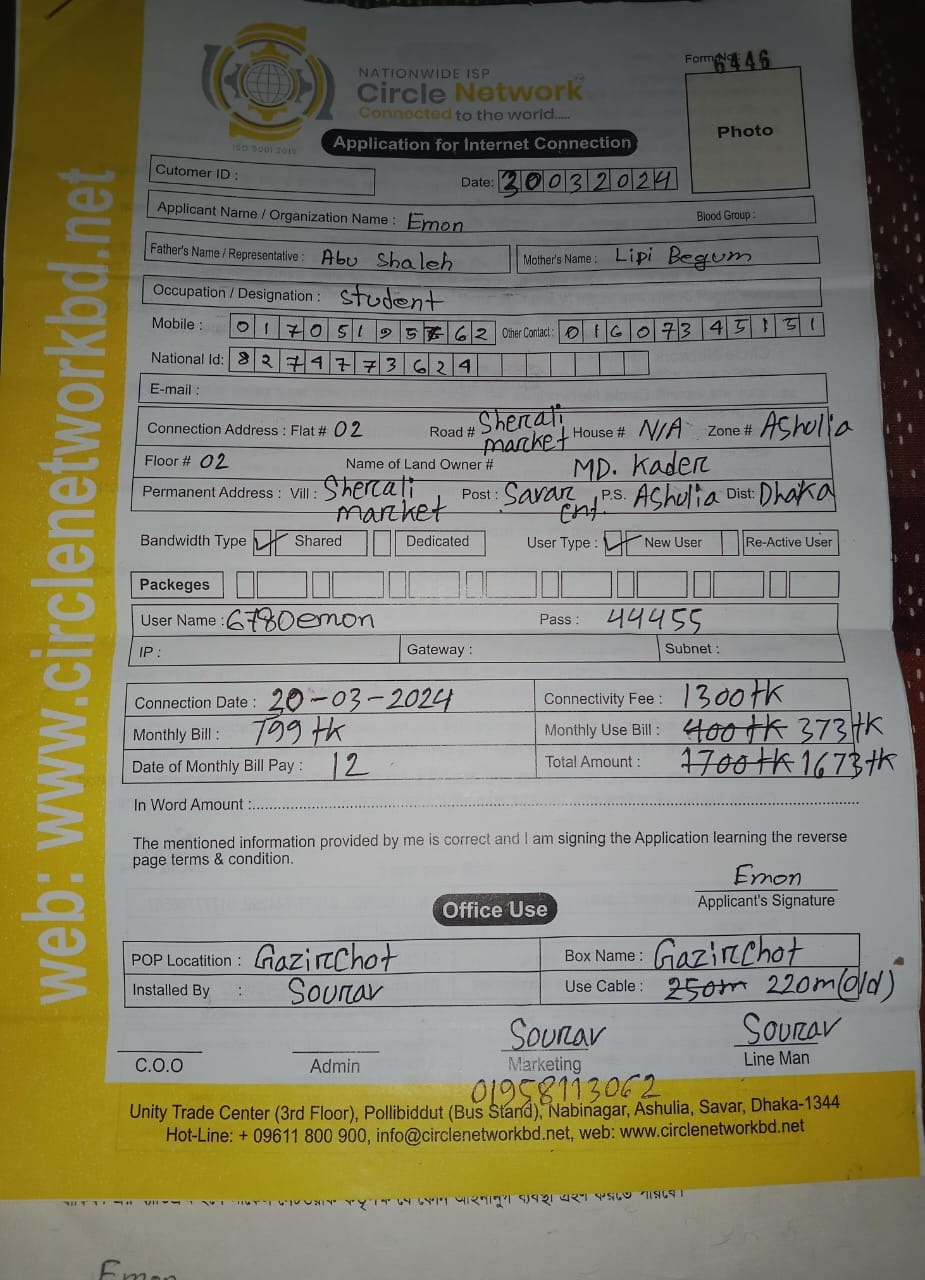 Form No. 6446
NATIONWIDE ISP
Circle Network
Connected to the world.....
ISO 9001:2015
Application for Internet Connection
Photo
Cutomer ID :
Date: 30032024
Applicant Name / Organization Name : Emon Blood Group :
Father's Name / Representative : Abu Shaleh Mother's Name : Lipi Begum
Occupation / Designation : Student
Mobile : 01705195562 Other Contact : 01607345131
National Id: 8274773624
E-mail :
Connection Address : Flat # 02 Road # Sherali market House # N/A Zone # Ashulia
Floor # 02 Name of Land Owner # MD. Kader
Permanent Address : Vill : Sherali market Post : Savar cnt. P.S. Ashulia Dist: Dhaka
Bandwidth Type Shared Dedicated User Type : New User Re-Active User
Packeges
User Name : 6780emon Pass : 44455
IP : Gateway : Subnet :
Connection Date : 20-03-2024 Connectivity Fee : 1300tk
Monthly Bill : 799 tk Monthly Use Bill : 400tk 373tk
Date of Monthly Bill Pay : 12 Total Amount : 1700tk 1673tk
In Word Amount :
The mentioned information provided by me is correct and I am signing the Application learning the reverse
page terms & condition.
Emon
Applicant's Signature
Office Use
POP Locatition : Gazirchot Box Name : Gazirchot
Installed By : Sourav Use Cable : 250m 220m(old)
Sourav Sourav
C.O.O Admin Marketing Line Man
01958113062
Unity Trade Center (3rd Floor), Pollibiddut (Bus Stand), Nabinagar, Ashulia, Savar, Dhaka-1344
Hot-Line: + 09611 800 900, info@circlenetworkbd.net, web: www.circlenetworkbd.net
web: www.circlenetworkbd.net
Emon